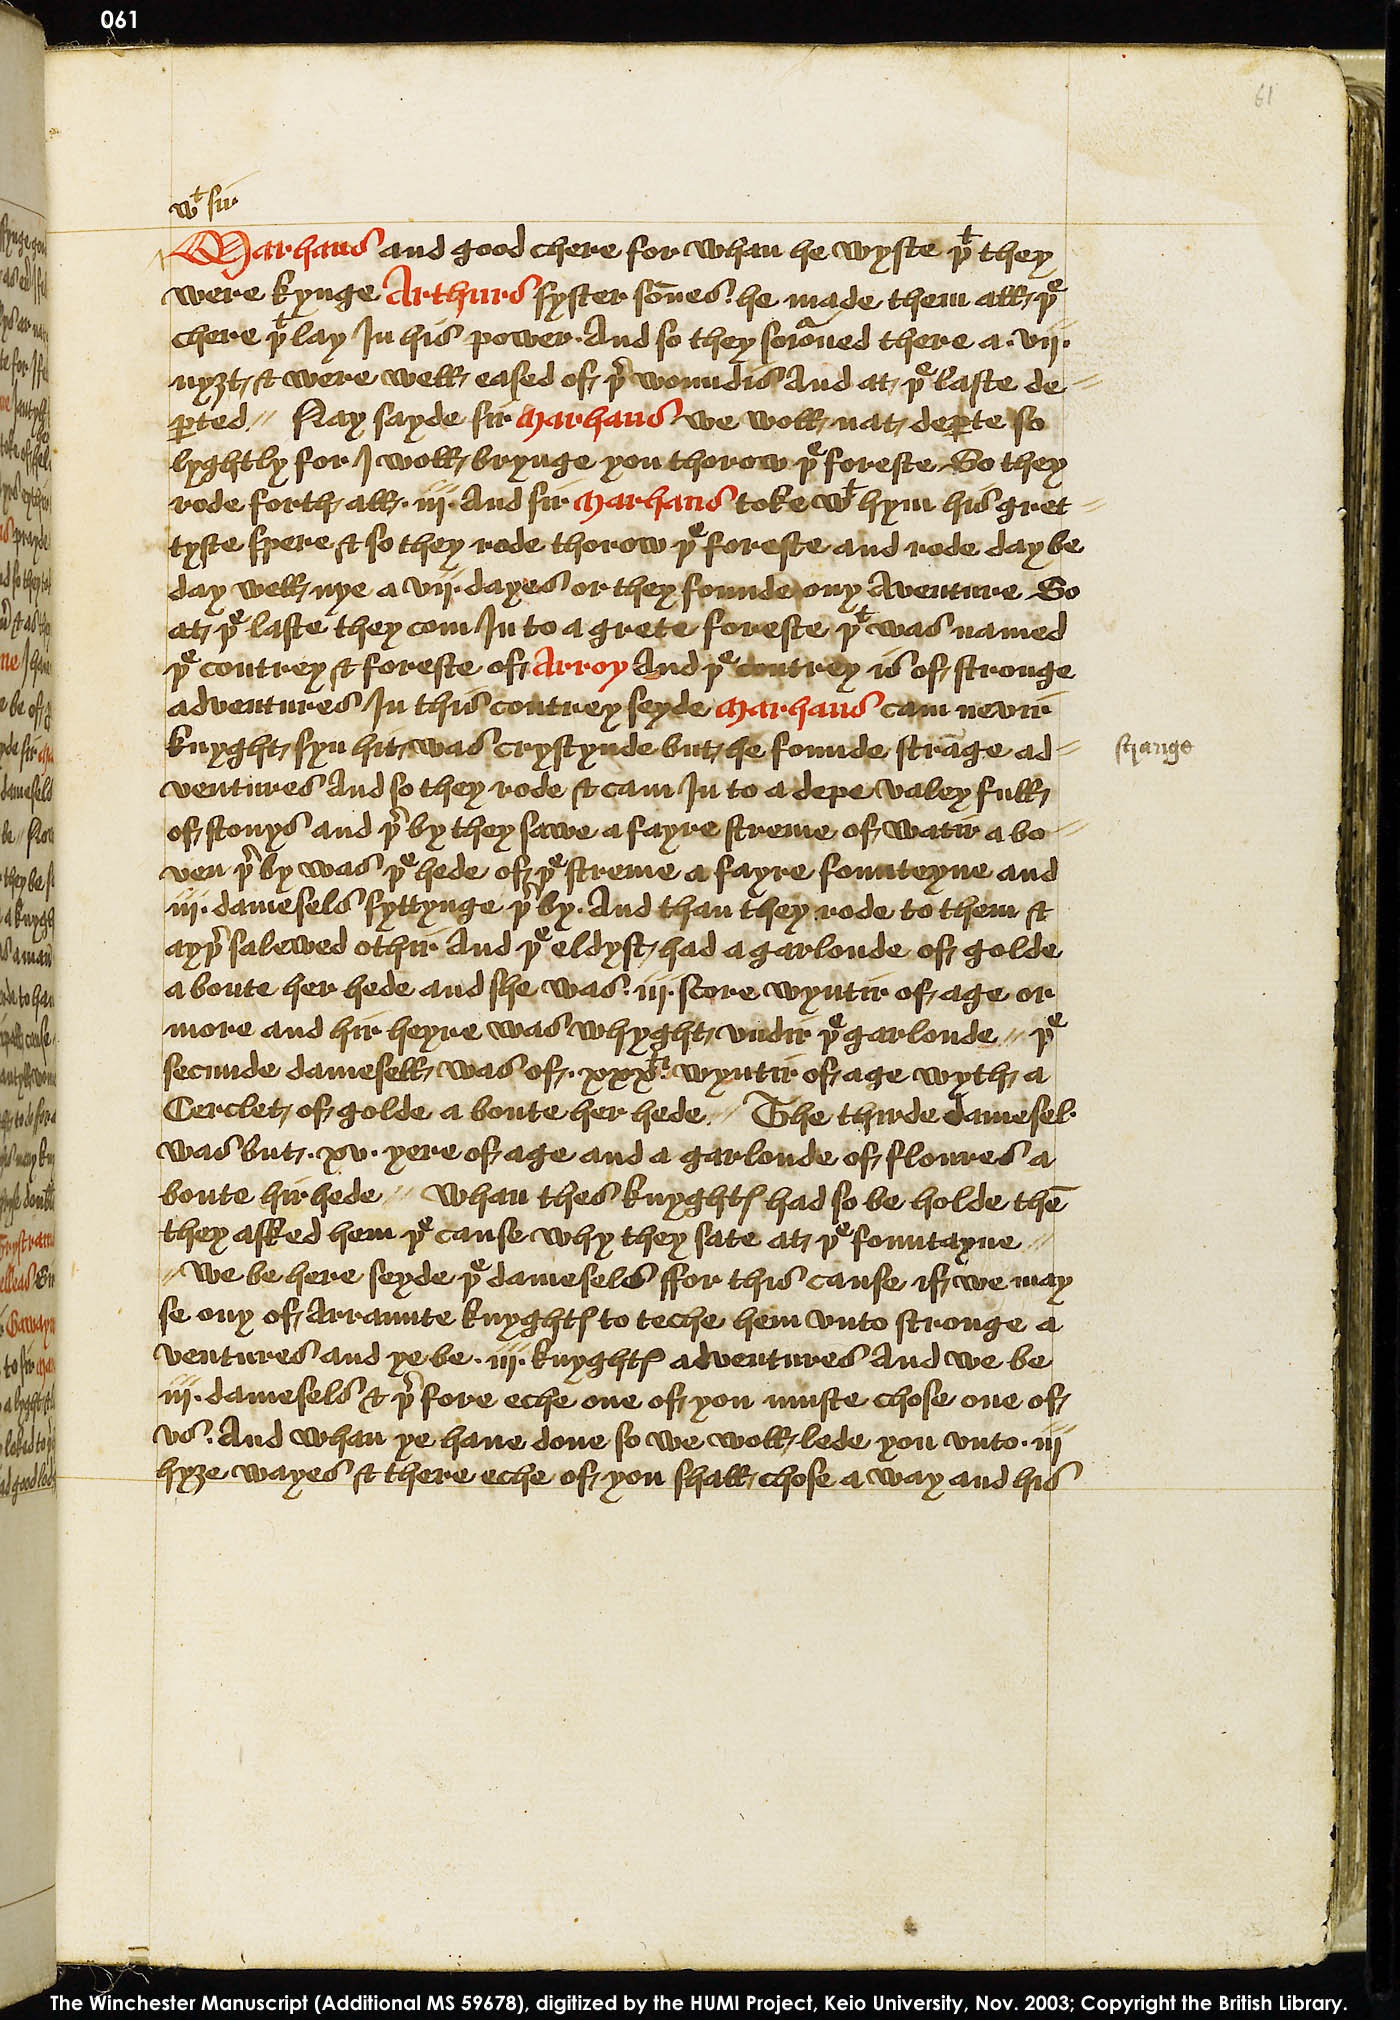 061
61
wᵗ sir
Marhaus and good chere for whan he wyste þᵗ they
were kynge Arthurs syster sōnes he made them all þᵉ
chere þᵗ lay In his power. And so they soioᵘned there a .vij.
nyȝt & were well eased of þʳ woundis And at þᵉ laste de
ꝑted // Nay sayde sir Marhaus we woll nat deꝑte so
lyghtly for I woll brynge you thorow þᵉ foreste So they
rode forth all .iij. And sir Marhaus toke wᵗ hym his gret
tyste spere & so they rode thorow þᵉ foreste and rode day be
day well nye a vij. dayes or they founde ony Aventure So
at þᵉ laste they com In to a grete foreste þᵗ was named
þᵉ contrey & foreste of Arroy And þᵉ contrey is of stronge
adventures In this contrey seyde Marhaus cam nevir
knyght syn hit was crystynde but he founde strāge ad
strange
ventures And so they rode & cam In to a depe valey full
of stonys and þʳ by they sawe a fayre streme of watir a bo
ven þʳ by was þᵉ hede of þᵉ streme a fayre founteyne and
iij. damesels syttynge þʳ by. And than they rode to them &
ayþʳ salewed othir And þᵉ eldyst had a garlonde of golde
a boute her hede and she was .iij. score wyntir of age or
more and hir heyre was whyght undir þᵉ garlonde // þᵉ
secunde damesell was of .xxxᵗⁱ. wyntir of age wyth a
Cerclet of golde a boute her hede // The thirde damesel
was but .xv. yere of age and a garlonde of floures a
boute hir hede // Whan thes knyghtꝭ had so be holde thē
they asked hem þᵉ cause why they sate at þᵉ fountayne //
// We be here seyde þᵉ damesels ffor this cause if we may
se ony of Arraunte knyghtꝭ to teche hem unto stronge a
ventures and ye be .iij. knyghtꝭ adventures And we be
iij. damesels & þʳ fore eche one of you muste chose one of
us. And whan ye have done so we woll lede you unto .iij
hyȝe wayes & there eche of you shall chose a way and his
The Winchester Manuscript (Additional MS 59678), digitized by the HUMI Project, Keio University, Nov. 2003; Copyright the British Library.